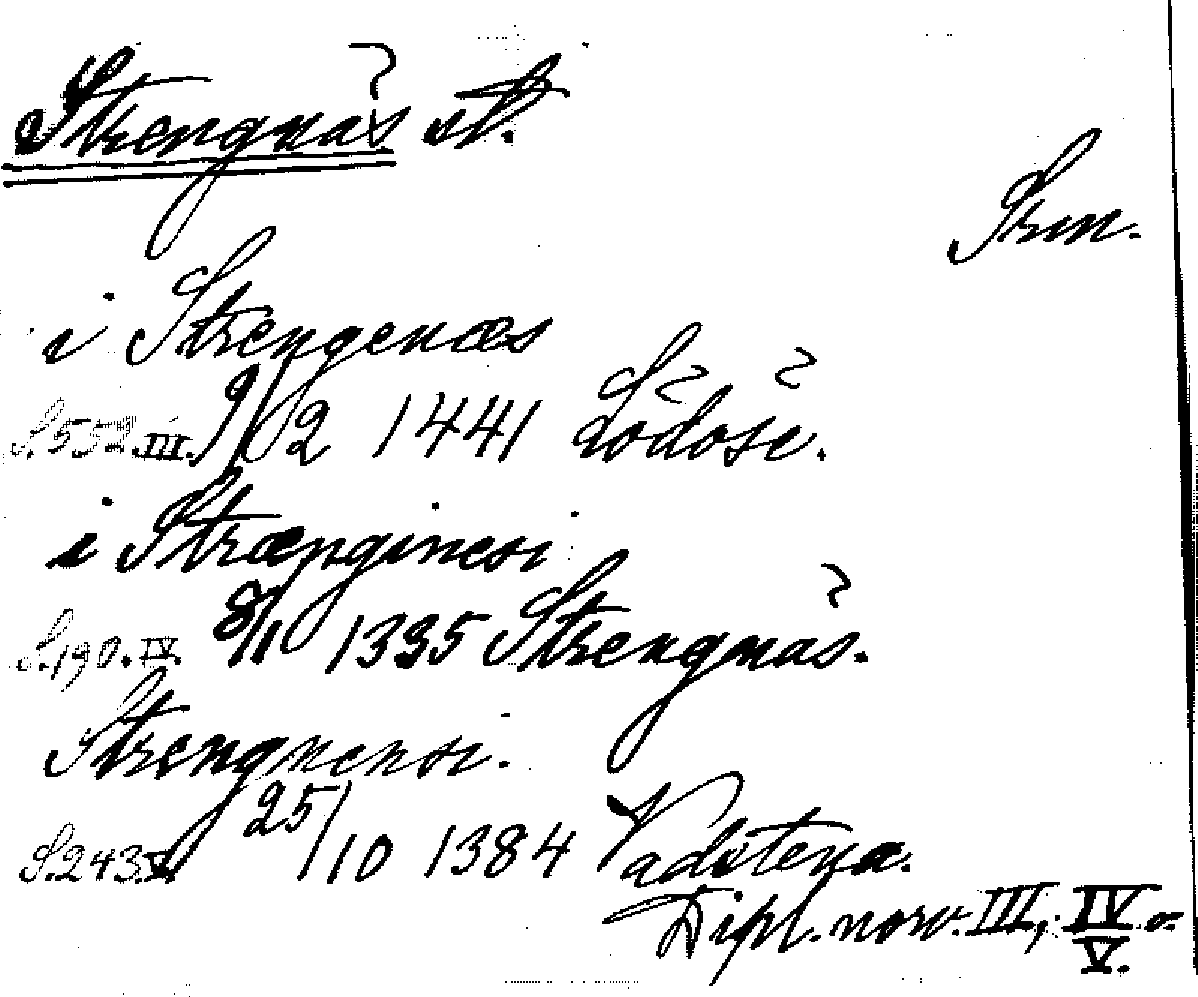 Strengnäs st.
Srm.
i Strengenæs
S. 552. III. 9/2 1441 Lödöse.
i Strænginesi
S. 190. IV. 8/11 1335 Strengnäs.
Strengnensi.
S. 243. V. 25/10 1384 Vadstena.
Dipl. norv. III, IV o.
V.